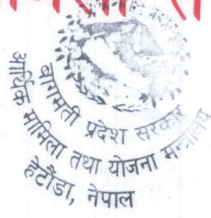 बागमती प्रदेश सरकार
आर्थिक मामिला तथा योजना मन्त्रालय
हेटौंडा, नेपाल